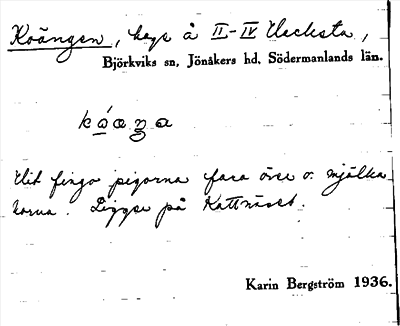 Koängen, hage å II-IV Vecksta,
Björkviks sn, Jönåkers hd. Södermanlands län.
Dit fingo pigorna fara över o. mjölka
korna. Ligger på Kattnäset.
Karin Bergström 1936.